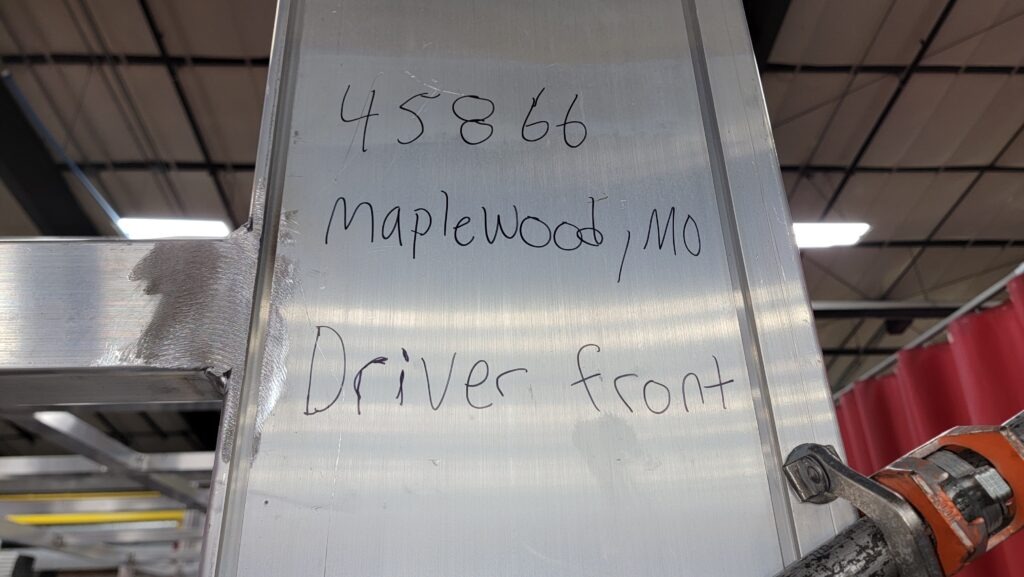 45866
Maplewood, MO
Driver front